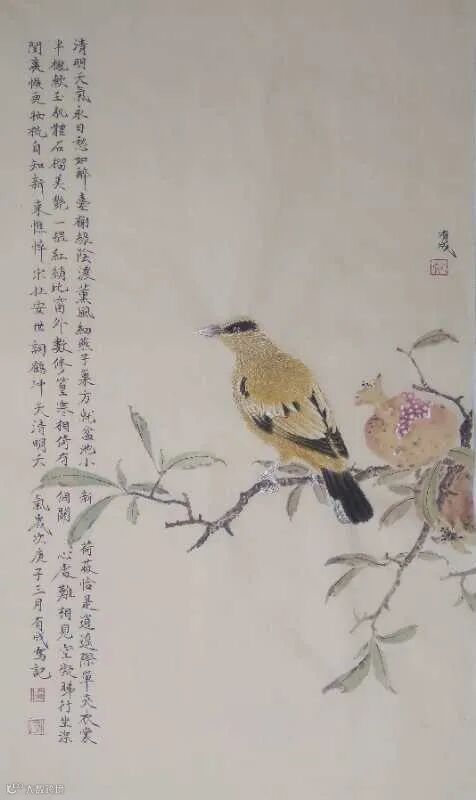 有成
清明天氣永日愁如醉臺榭綠陰濃薰風細燕子巢方就盆池小新荷蔽恰是逍遙際單夾衣裳
半櫳軟玉肌體石榴美艷一撮紅綃比窗外數修篁寒相倚有個關心處難相見空凝睇行坐深
閨裏懶更妝梳自知新來憔悴宋杜安世詞鶴沖天清明天氣歲次庚子三月有成寫記